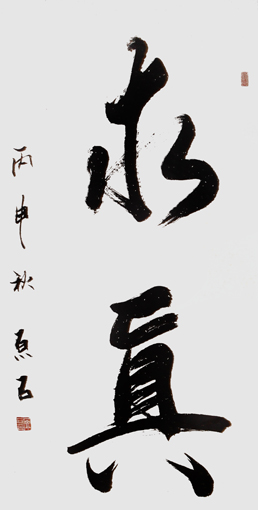 求真
丙申秋